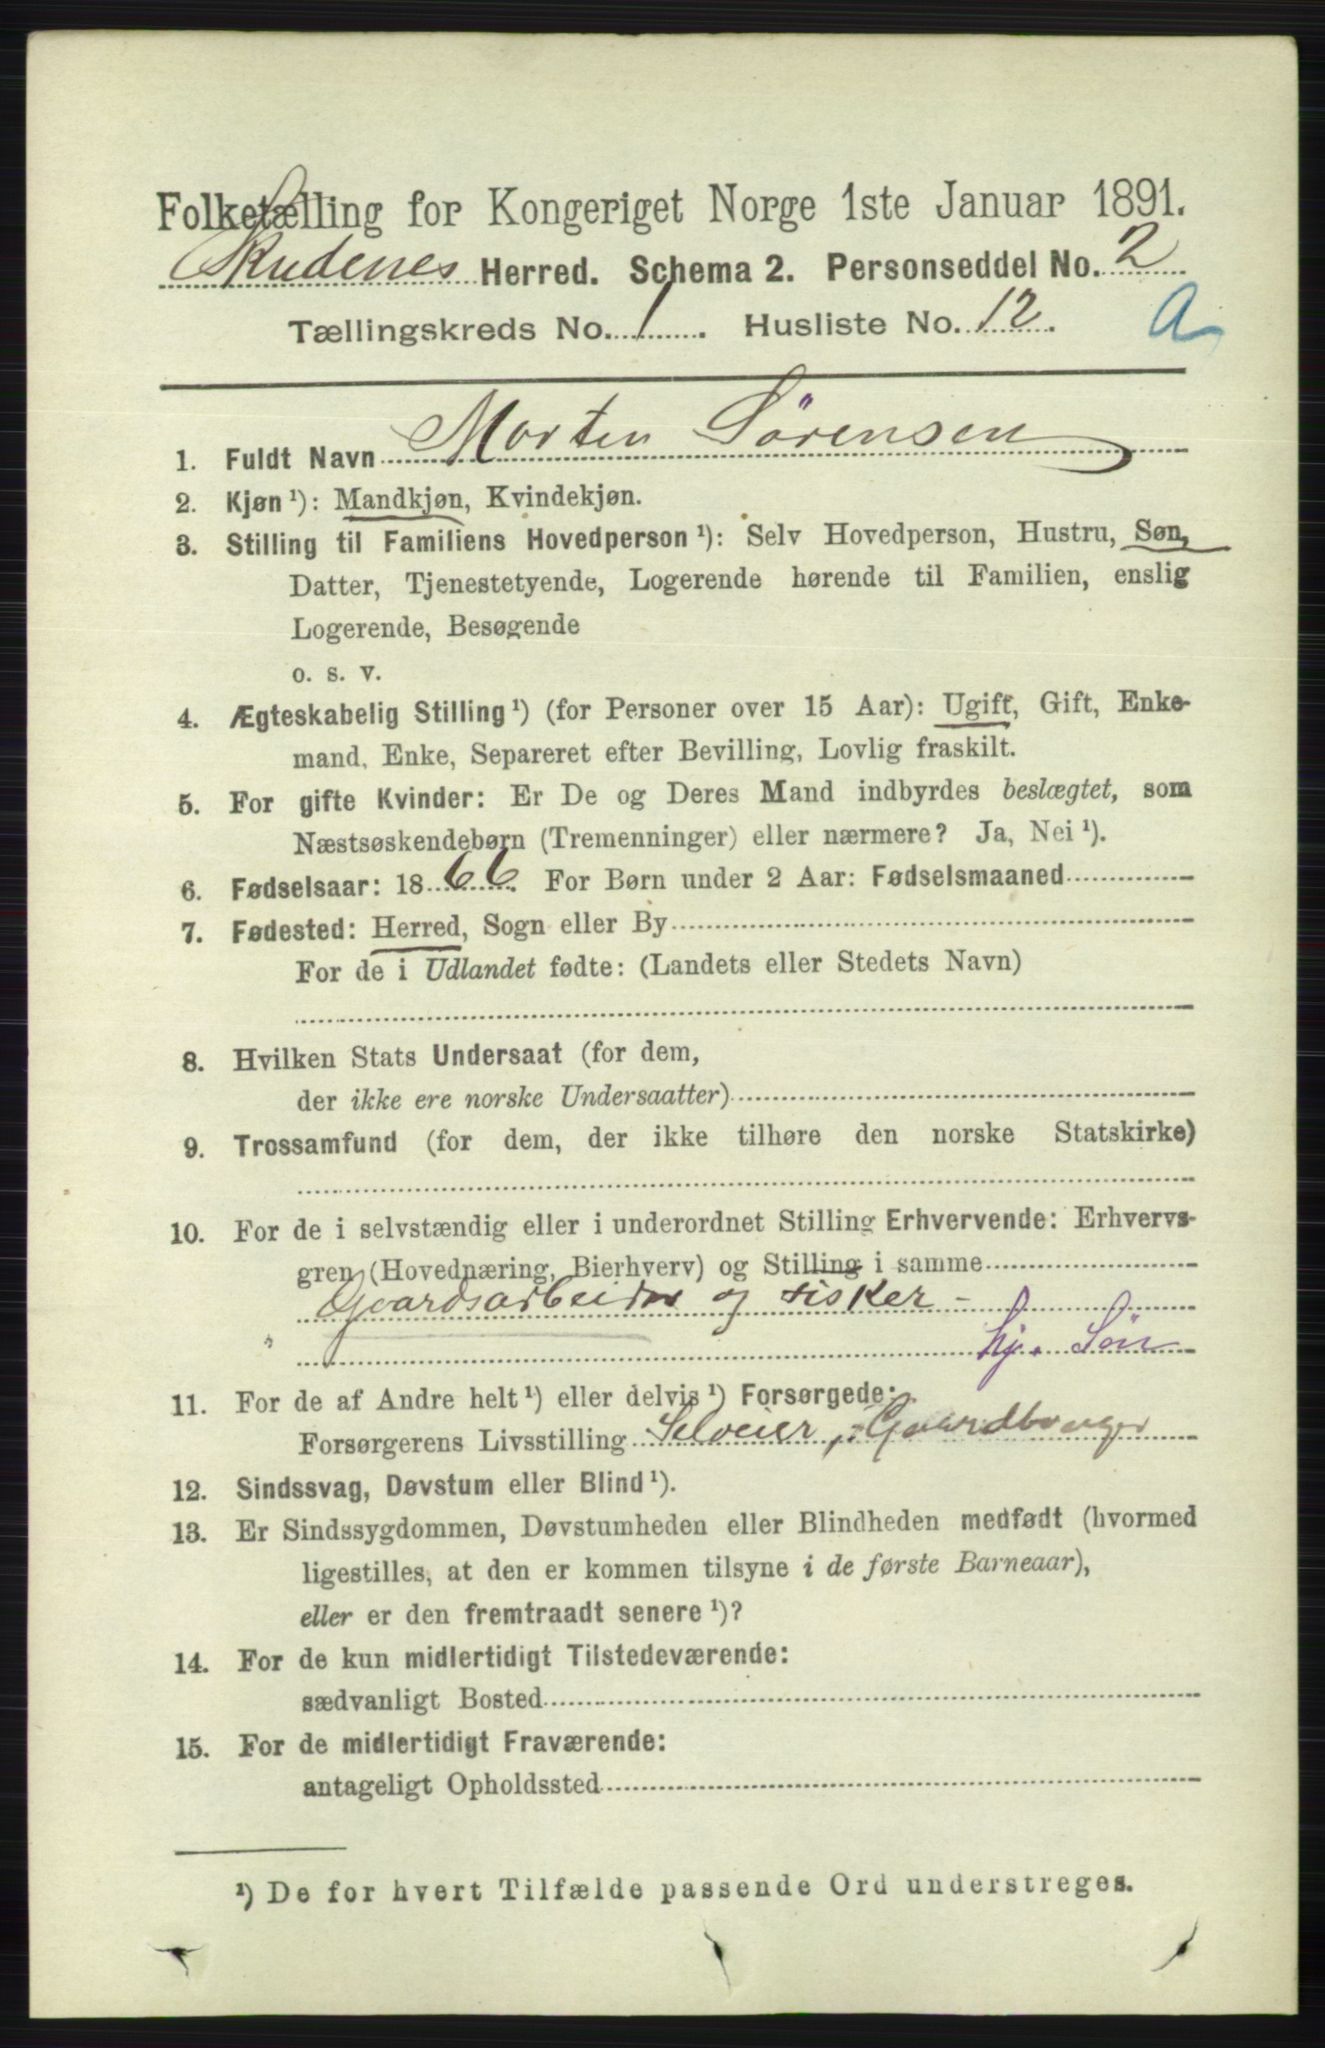 Folketælling for Kongeriget Norge 1ste Januar 1891.
Skudenes Herred. Schema 2. Personseddel No. 2
Tællingskreds No. 1. Husliste No. 12. a
1. Fuldt Navn Morten Sörensen
2. Kjøn ¹): Mandkjøn, Kvindekjøn.
3. Stilling til Familiens Hovedperson ¹): Selv Hovedperson, Hustru, Søn,
Datter, Tjenestetyende, Logerende hørende til Familien, enslig
Logerende, Besøgende
o. s. v.
4. Ægteskabelig Stilling ¹) (for Personer over 15 Aar): Ugift, Gift, Enke-
mand, Enke, Separeret efter Bevilling, Lovlig fraskilt.
5. For gifte Kvinder: Er De og Deres Mand indbyrdes beslægtet, som
Næstsøskendebørn (Tremenninger) eller nærmere? Ja, Nei ¹).
6. Fødselsaar: 1866. For Børn under 2 Aar: Fødselsmaaned
7. Fødested: Herred, Sogn eller By
For de i Udlandet fødte: (Landets eller Stedets Navn)
8. Hvilken Stats Undersaat (for dem,
der ikke ere norske Undersaatter)
9. Trossamfund (for dem, der ikke tilhøre den norske Statskirke)
10. For de i selvstændig eller i underordnet Stilling Erhvervende: Erhvervs-
gren (Hovednæring, Bierhverv) og Stilling i samme
Gaardsarbeider og fisker -
" hj. Sön
11. For de af Andre helt ¹) eller delvis ¹) Forsørgede:
Forsørgerens Livsstilling Selveier, Gaardbruger
12. Sindssvag, Døvstum eller Blind ¹).
13. Er Sindssygdommen, Døvstumheden eller Blindheden medfødt (hvormed
ligestilles, at den er kommen tilsyne i de første Barneaar),
eller er den fremtraadt senere ¹)?
14. For de kun midlertidigt Tilstedeværende:
sædvanligt Bosted
15. For de midlertidigt Fraværende:
antageligt Opholdssted
¹) De for hvert Tilfælde passende Ord understreges.